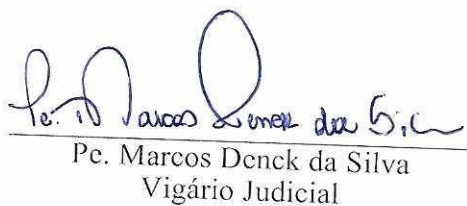 Pe. Marcos Denck da Silva
Pe. Marcos Denck da Silva
Vigário Judicial